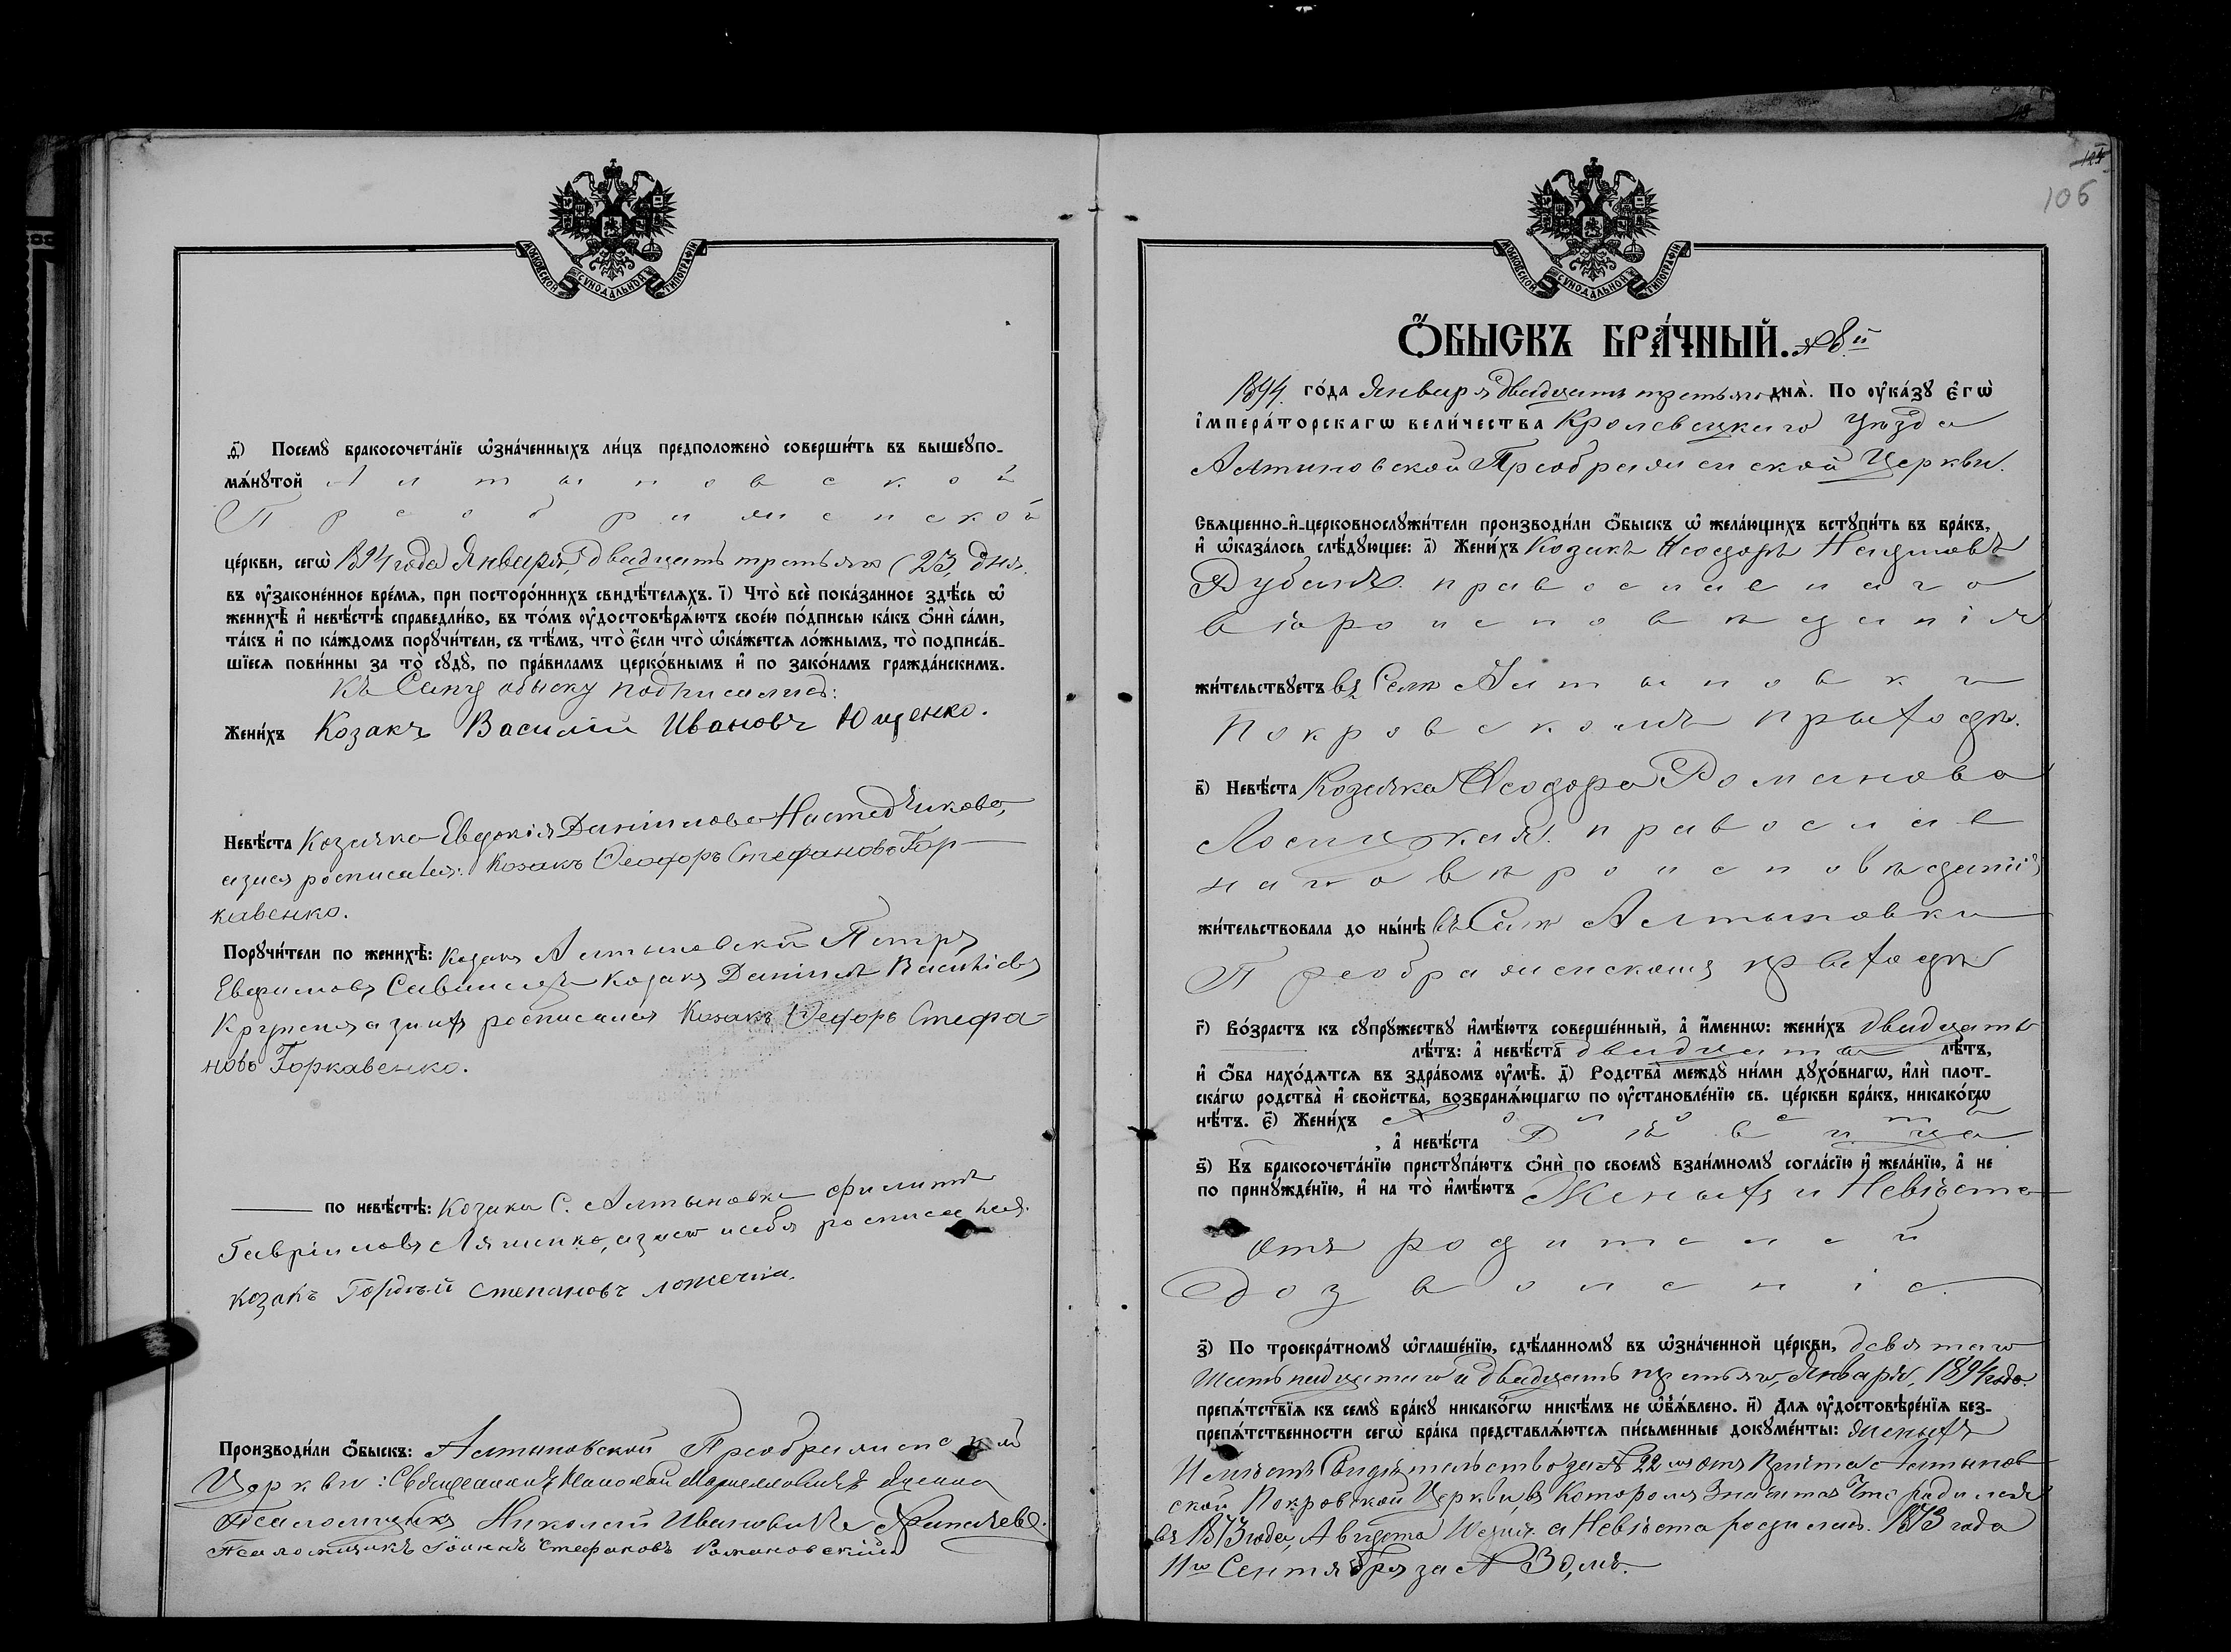 Московской Сунодальной Типографіи
д҃) Посемꙋ̀ бракосочета́нїе ѡ҆зна́ченныхъ ли́цъ предположено̀ соверши́ть въ вышеꙋпо-
мѧ́нꙋтой Алтыновской
Преображенской
це́ркви, сегѡ̀ 1894 года Января, двадцать третьяго (23) дня.
въ ᲂу҆законе́нное вре́мѧ, при посторо́ннихъ свидѣ́телѧхъ. і҃) Что̀ всѐ пока́занное здѣ́сь ѡ҆
женихѣ̀ и҆ невѣ́стѣ справедли́во, въ то́мъ ᲂу҆достовѣрѧ́ютъ свое́ю по́дписью ка́къ ѻ҆нѝ са́ми,
та́къ и҆ по ка́ждомъ порꙋчи́тели, съ тѣ́мъ, что̀ є҆́сли что̀ ѡ҆ка́жетсѧ ло́жнымъ, то̀ подписа́в-
шїесѧ пови́нны за то̀ сꙋдꙋ̀, по пра́виламъ церко́внымъ и҆ по зако́намъ гражда́нскимъ.
Къ Сему обыску подписались:
Жени́хъ Козакъ Василій Ивановъ Ющенко.
Невѣ́ста Козачка Евдокія Даніилова
росписался: Козакъ Ѳеодоръ Стефановъ Гор-
кавенко.
Порꙋчи́тели по женихѣ̀: Козакъ Алтыновскій Петръ
Евфимовъ Козакъ Даніилъ Васильевъ
росписался Козакъ Ѳеодоръ Стефа-
новъ Горкавенко.
по невѣ́стѣ: Козаки С. Алтыновки Филиппъ
Гавріиловъ Ляшенко, а за него и себя росписался
козакъ Гордѣй Степановъ
Производи́ли ѻ҆́быскъ: Алтыновской Преображенской
Церкви: Священникъ Николай
Псаломщикъ Николай Ивановичъ
Псаломщикъ Іоаннъ Стефановъ Романовскій
106
Московской Сунодальной Типографіи
Ѻ҆́быскъ бра́чный. № 8й
1894 го́да Января двадцать третьяго днѧ̀. По ᲂу҆ка́зꙋ є҆гѡ̀
і҆мпера́торскагѡ вели́чества Кролевецкаго Уѣзда
Алтыновской Преображенской Церкви.
Свѧщенно-и҆-церковнослꙋжи́тели производи́ли ѻ҆́быскъ ѡ҆ жела́ющихъ встꙋпи́ть въ бра́къ,
и҆ ѡ҆каза́лось слѣ́дꙋющее: а҃) Жени́хъ Козакъ Ѳеодоръ Наумовъ
православнаго
вѣроисповѣданія
жи́тельствꙋетъ въ Селѣ Алтыновки
Покровскомъ приходѣ.
в҃) Невѣ́ста Козачка Ѳеодора Романова
православ
наго вѣроисповѣданія
жи́тельствовала до ны́нѣ въ Селѣ Алтыновки
Преображенскомъ приходѣ
г҃) Во́зрастъ къ сꙋпрꙋ́жествꙋ и҆мѣ́ютъ соверше́нный, а҆ и҆́меннѡ: жени́хъ двадцать
лѣ́тъ: а҆ невѣ́ста двадцать лѣ́тъ,
и҆ ѻ҆́ба нахо́дѧтсѧ въ здра́вомъ ᲂу҆мѣ̀. д҃) Родства̀ междꙋ̀ ни́ми дꙋхо́внагѡ, и҆лѝ плот-
ска́гѡ родства̀ и҆ свойства̀, возбранѧ́ющагѡ по ᲂу҆становле́нїю св. це́ркви бра́къ, никако́гѡ
нѣ́тъ. є҃) Жени́хъ Холостъ
, а҆ невѣ́ста Дѣвица
ѕ҃) Къ бракосочета́нїю пристꙋпа́ютъ ѻ҆нѝ по своемꙋ̀ взаи́мномꙋ согла́сїю и҆ жела́нїю, а҆ не
по принꙋжде́нїю, и҆ на то̀ и҆мѣ́ютъ Женихъ и Невѣста
отъ родителей
дозволеніе.
з҃) По троекра́тномꙋ ѡ҆глаше́нїю, сдѣ́ланномꙋ въ ѡ҆зна́ченной це́ркви, девятаго
Шестьнадцатаго и двадцать третьяго, Января, 1894 года.
препѧ́тствїѧ къ семꙋ̀ бра́кꙋ никако́гѡ никѣ́мъ не ѡ҆б̾ѧ́влено. и҃) Длѧ ᲂу҆достовѣре́нїѧ без-
препѧ́тственности сегѡ̀ бра́ка представлѧ́ютсѧ пи́сьменные докꙋме́нты: женихъ
Имѣетъ Свидѣтельство за № 22 отъ Причта Алтынов-
ской Покровской Церкви, въ Которомъ Значится Что родился
въ 1873 года, Августа а Невѣста родилась 1873 года
11го Сентября за № 30,мъ.